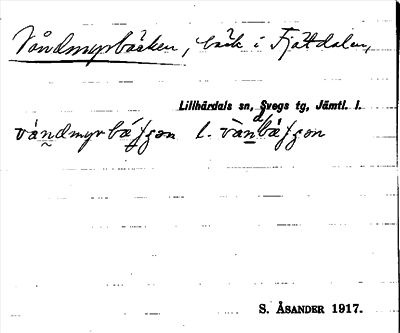 Våndmyrbäcken, bäck i Fjätdalen,
Lillhärdals sn, Svegs tg, Jämtl. l.
l.
S. ÅSANDER 1917.